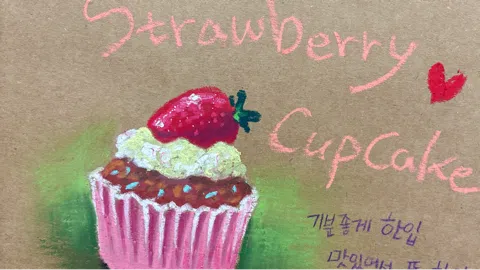 Strawberry
CupCake
기분좋게 한입
맛있어서 또